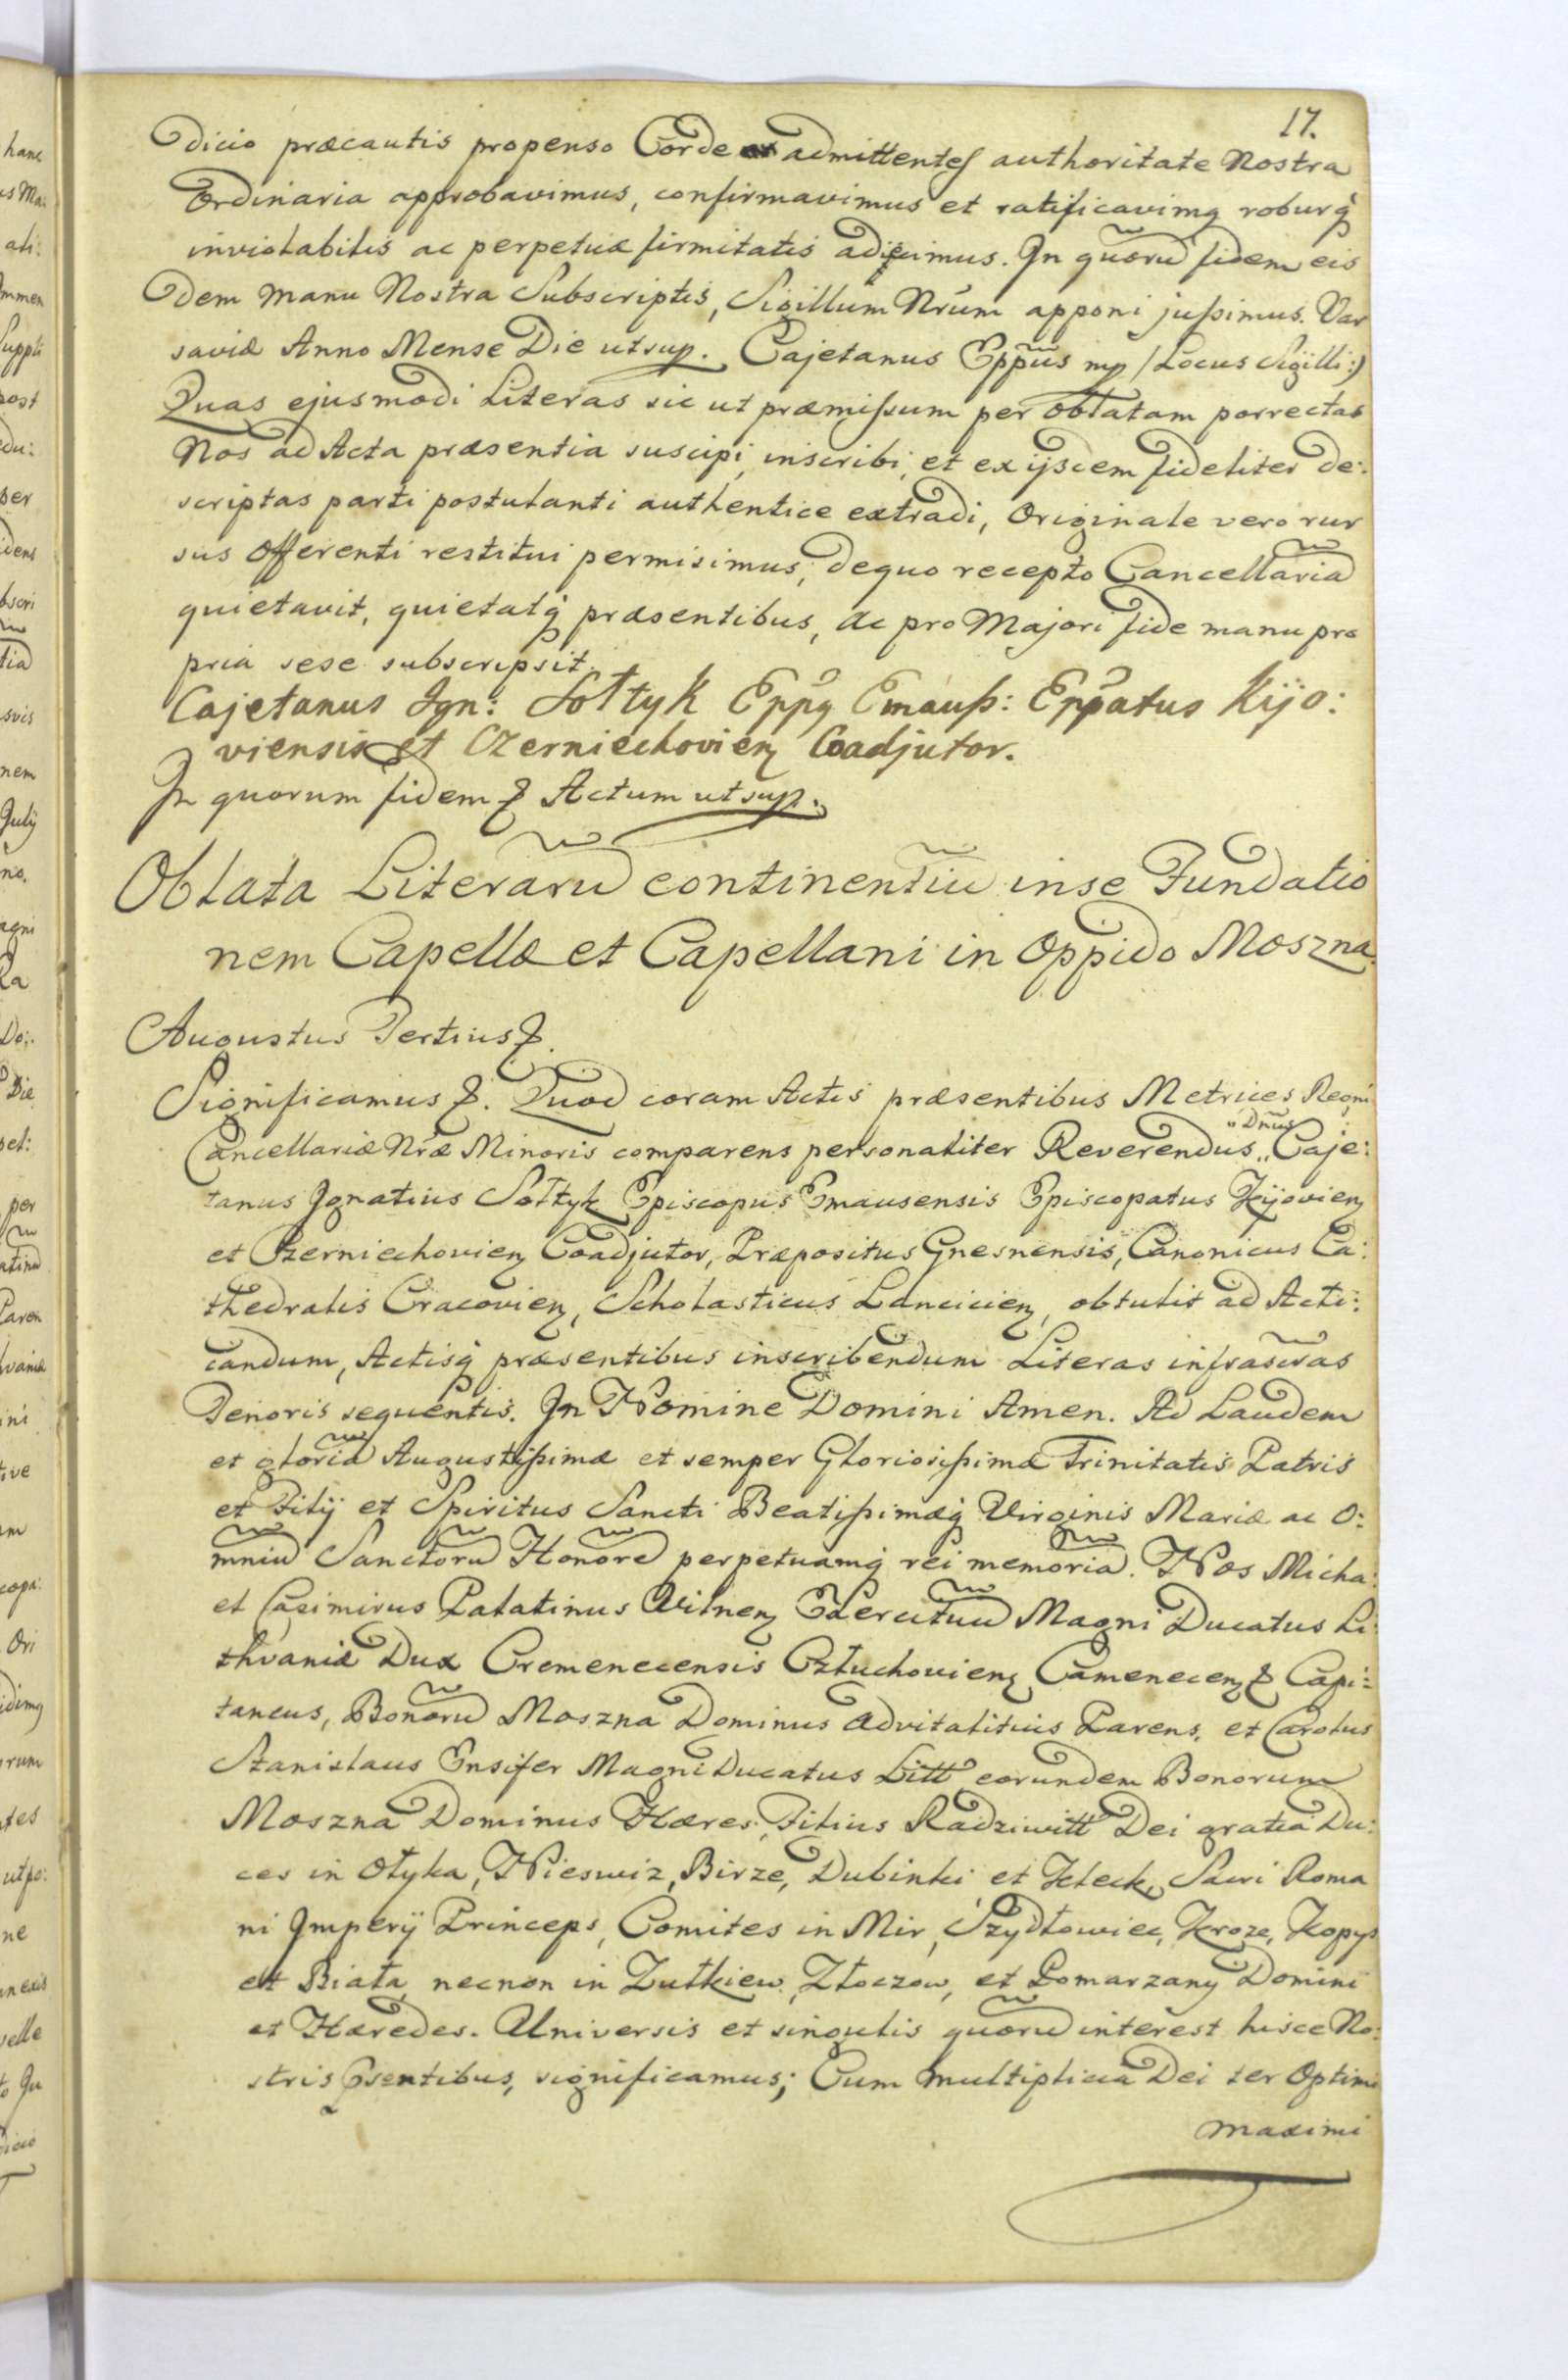 17.
dicio præcautis propenso Corde admittentes authoritate Nostra
Ordinaria approbavimus, confirmavimus et ratificavimq roburq́
inviolabilis ac perpetuæ firmitatis adjicimus. In quorũ fidem eis
dem manu Nostra Subscriptis, Sigillum Nrũm apponi jußimus. Var
saviæ Anno Mense Die ut sup. Cajetanus Eppũs mp /Locus Sigilli:)
Quas ejusmodi Literas sic ut præmißum per oblatam porrectas
Nos ad Acta præsentia suscipi, inscribi, et ex ijsdem fideliter de:
scriptas parti postulanti authentice extradi, Originale vero rur
sus Offerenti restitui permisimus, dequo recepto Cancellariã
quietavit, quietatq́ præsentibus, Ac pro Majori fide manu pro
pria sese subscripsit.
Cajetanus Ign: Sołtyk Eppq Emauß: Eppatus Kijo:
viensis et Czerniechovien Coadjutor.
In quorum fidem & Actum ut sup.
Oblata Literarũ continentiũ inse Fundatio
nem Capellæ et Capellani in Oppido Moszna.
Augustus Tertius &.
Significamus &. Quod coram Actis præsentibus Metrices Regni
Cancellariæ Nræ Minoris comparens personaliter Reverendus "Dnus" Caje:
tanus Ignatius Sołtyk Episcopus Emausensis Episcopatus Kijovien
et Czerniechovien Coadjutor, Præpositus Gnesnensis, Canonicus Ca:
thedralis Cracovien, Scholasticus Lancicien, obtulit ad Acti:
candum, Actisq́ præsentibus inscribendum Literas infrascr̃as
Tenoris sequentis. In Nomine Domini Amen. Ad Laudem
et gloriã Augustißimæ et semper Gloriosißimæ Trinitatis Patris
et Filij et Spiritus Sancti Beatißimæq́ Virginis Mariæ ac O:
mniũ Sanctorũ Honorẽ perpetuamq́ rei memoriã. Nos Micha:
el Casimirus Palatinus Vilnen Exercituũ Magni Ducatus Li:
thvaniæ Dux Cremenecensis Człuchovien Camenecen & Capi:
taneus, Bonorũ Moszna Dominus Advitalitius Parens, et Carolus
Stanislaus Ensifer Magni Ducatus Litt eorundem Bonorum
Moszna Dominus Hæres, Filius Radziwiłł Dei gratia Du:
ces in Ołyka, Nieswiz, Birze, Dubinki et Kleck, Sacri Roma
ni Imperij Princeps, Comites in Mir, Szydłowiec, Kroze, Kopys
et Biała, necnon in Zułkiew, Złoczow, et Pomarzany Domini
et Hæredes. Universis et singulis quorũ interest hisce No:
stris psentibus, significamus; Cum multiplicia Dei ter Optimi
maximi